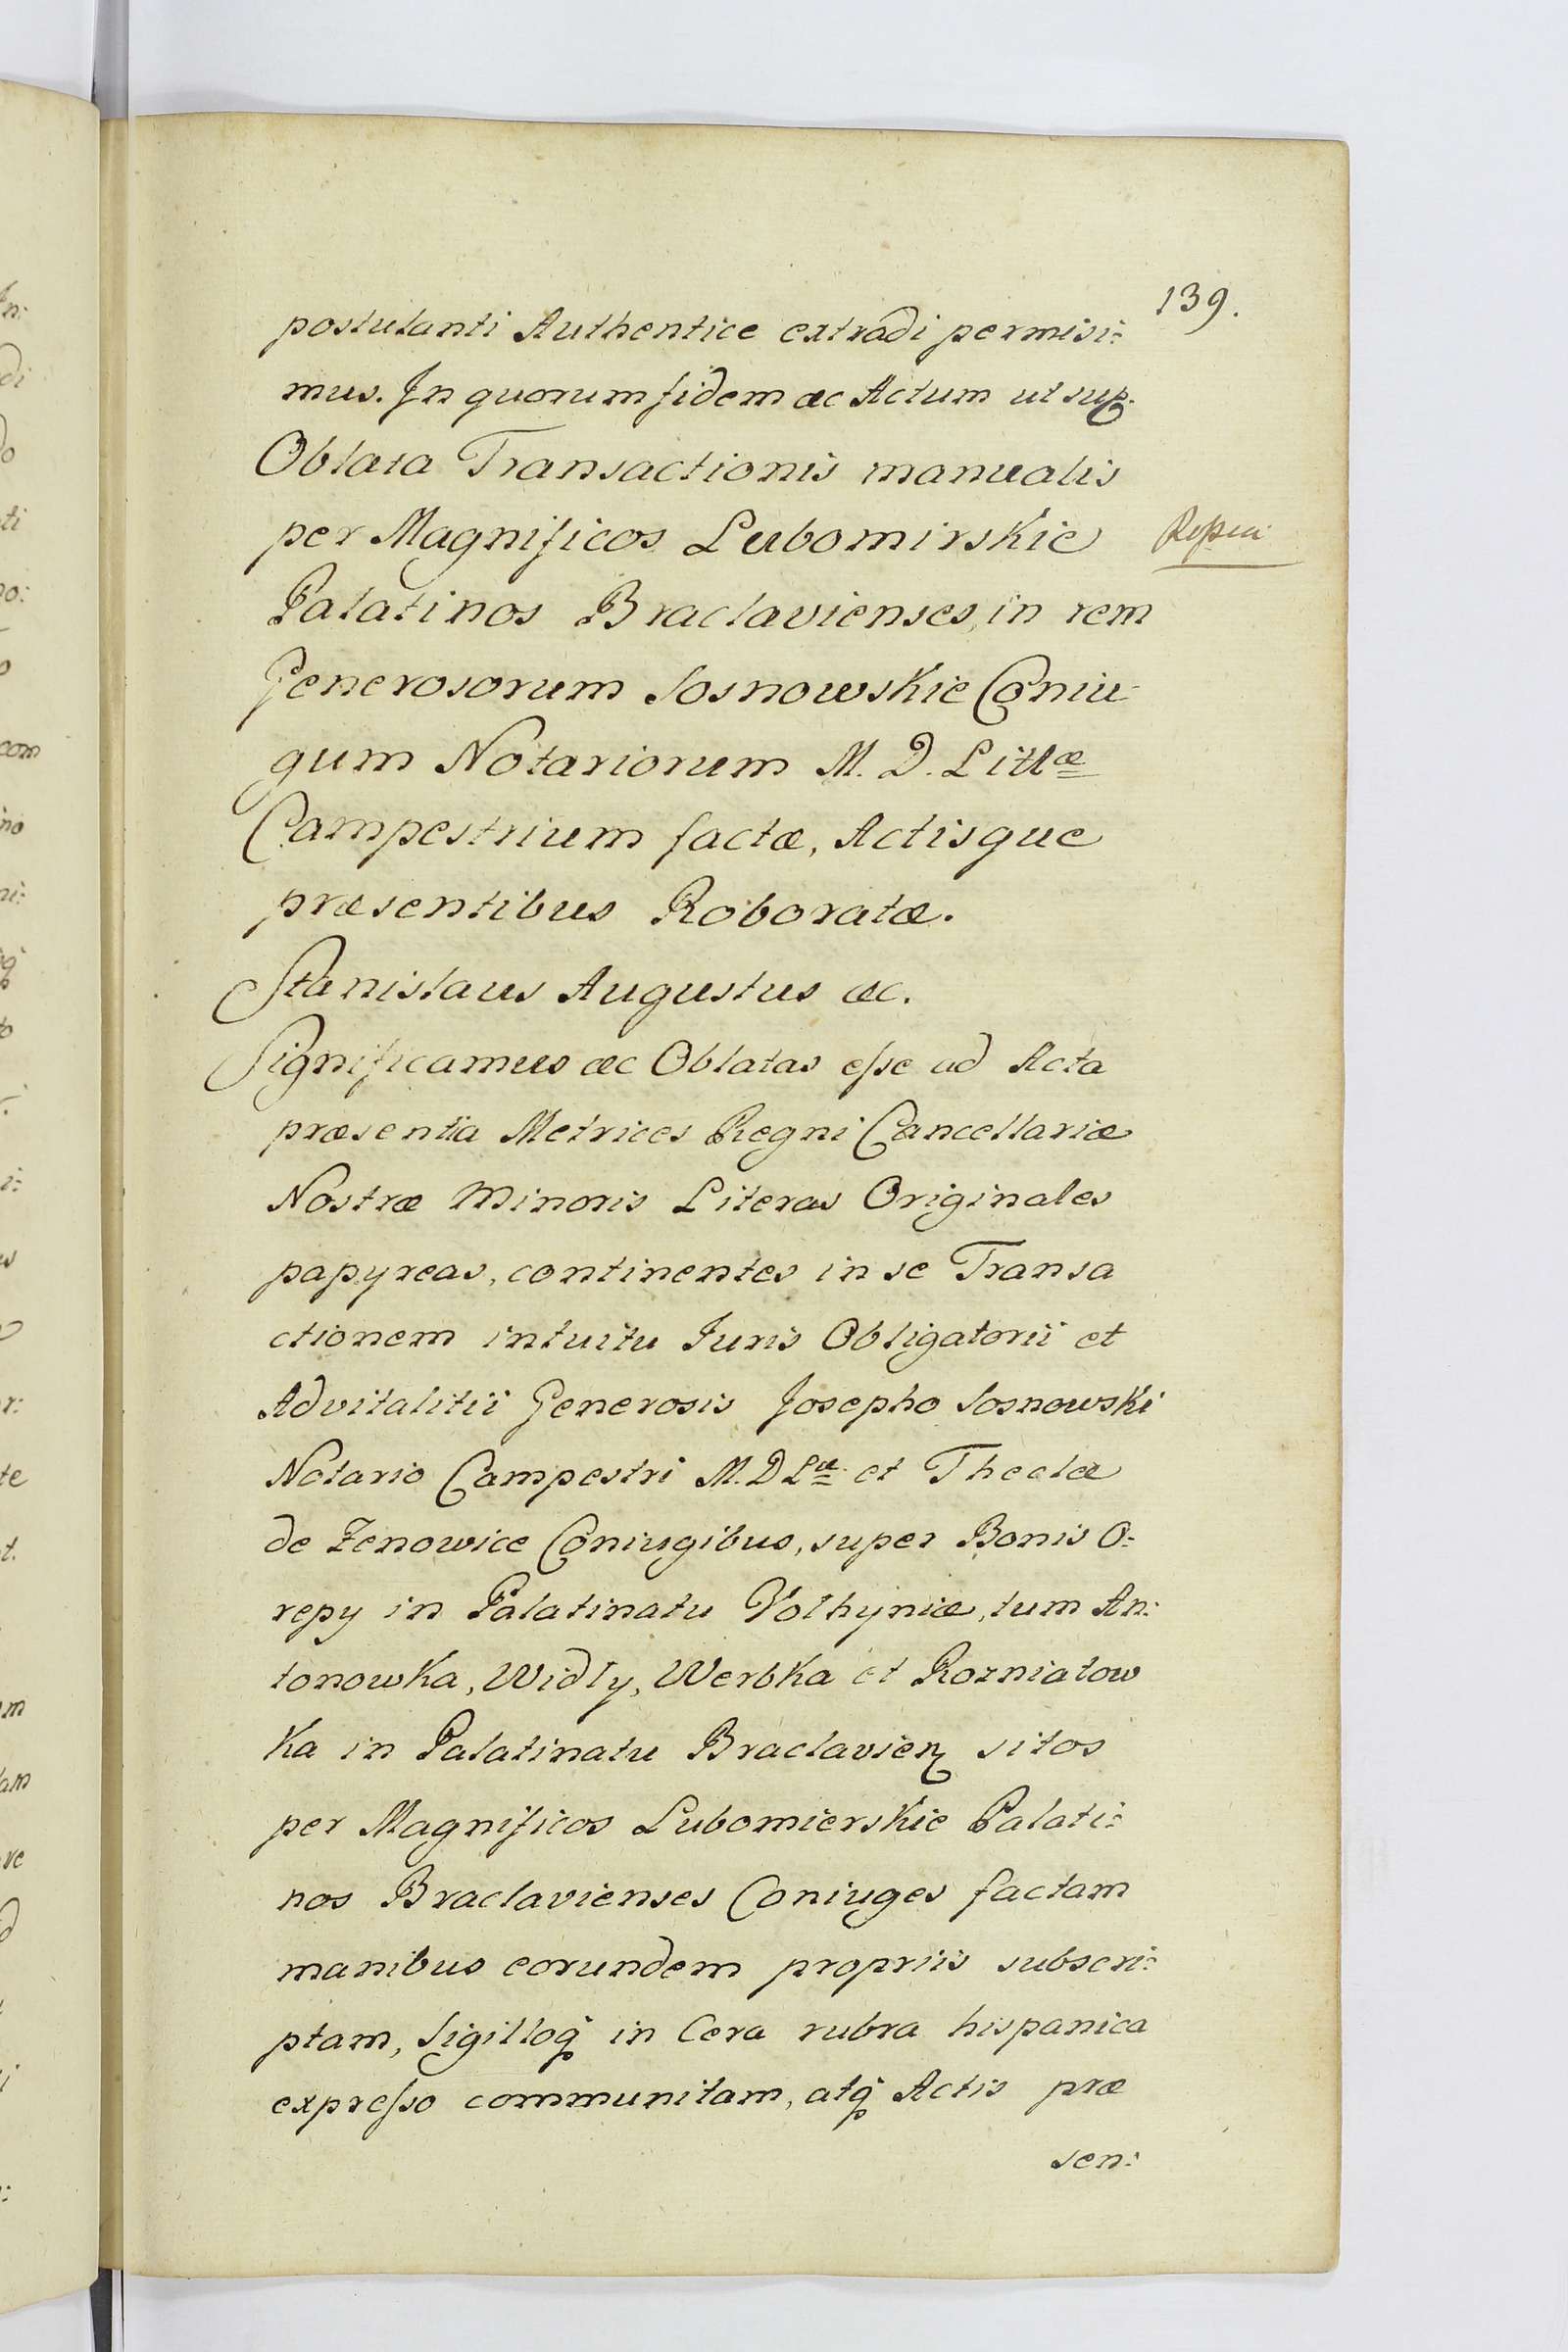 139.
postulanti Authentice extradi permisi:
mus. In quorum fidem &c Actum ut sup.
Oblata Transactionis manualis
per Magnificos Lubomirskie
Palatinos Braclavienses, in rem
Generosorum Sosnowskie Coniu
gum Notariorum M. D. Littæ
Campestrium factæ, Actisque
præsentibus Roboratæ.
Stanislaus Augustus &c.
Significamus &c Oblatas esse ad Acta
præsentia Metrices Regni Cancellariæ
Nostræ Minoris Literas Originales
papyreas, continentes in se Transa
ctionem intuitu Iuris Obligatorii et
Advitalitii Generosis Josepho Sosnowski
Notario Campestri M. D Læ et Theclæ
de Zenowice Coniugibus, super Bonis O:
repy in Palatinatu Volhyniæ, tum An:
tonowka, Widly, Werbka et Rozniatow
ka in Palatinatu Braclavien sitos
per Magnificos Lubomierskie Palati:
nos Braclavienses Coniuges factam
manibus eorundem propriis subscri:
ptam, Sigilloq in Cera rubra hispanica
expresso communitam, atq Actis præ
sen: